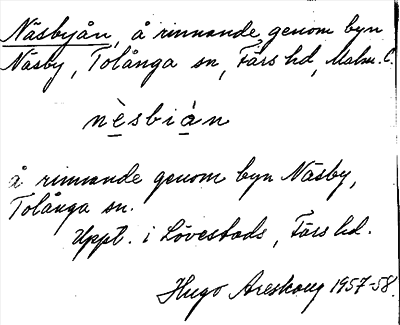 Näsbyån, å rinnande genom byn
Näsby, Tolånga sn, Färs hd, Malm. C.
nèsbiàn
å rinnande genom byn Näsby,
Tolånga sn.
Uppt. i Lövestads, Färs hd.
Hugo Areskoug 1957-58.